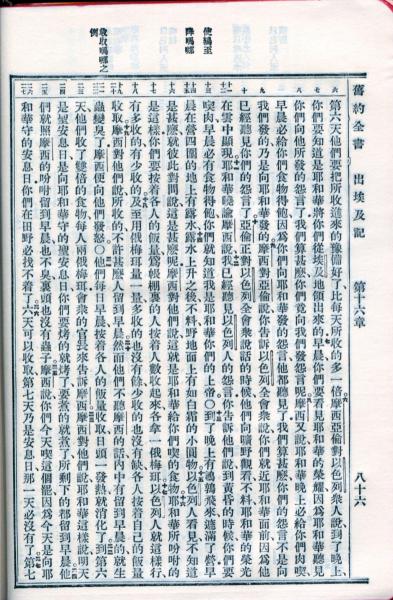 舊約全書　出埃及記　第十六章　八十六
第六天他們要把所收進來的豫備好了比每天所收的多一倍摩西亞倫對以色列衆人說到了晚上
你們要知道是耶和華將你們從埃及地領出來的早晨你們要看見耶和華的榮耀因爲耶和華聽見
你們向他所發的怨言了我們算甚麼你們竟向我們發怨言呢摩西又說耶和華晚上必給你們肉喫
早晨必給你們食物得飽因爲你們向耶和華發的怨言他都聽見了我們算甚麼你們的怨言不是向
我們發的乃是向耶和華發的摩西對亞倫說你告訴以色列全會衆說你們就近耶和華面前因爲他
已經聽見你們的怨言了亞倫正對以色列全會衆說話的時候他們向曠野觀看不料耶和華的榮光
在雲中顯現耶和華曉諭摩西說我已經聽見以色列人的怨言你告訴他們說到黃昏的時候你們要
喫肉早晨必有食物得飽你們就知道我是耶和華你們的上帝○到了晚上有鵪鶉飛來遮滿了營早
晨在營四圍的地上有露水露水上升之後不料野地面上有如白霜的小圓物以色列人看見不知道
是甚麼就彼此對問說這是甚麼呢摩西對他們說這就是耶和華給你們喫的食物耶和華所吩咐的
是這樣你們要按着各人的飯量爲帳棚裏的人按着人數收起來各拿一俄梅珥以色列人就這樣行
有多收的有少收的及至用俄梅珥量一量多收的也沒有餘少收的也沒有缺各人按着自己的飯量
收取摩西對他們說所收的不許甚麼人留到早晨然而他們不聽摩西的話內中有留到早晨的就生
蟲變臭了摩西便向他們發怒○他們每日早晨按着各人的飯量收取日頭一發熱就消化了到第六
天他們收了雙倍的食物每人兩俄梅珥會衆的官長來告訴摩西摩西對他們說耶和華這樣說明天
是聖安息日是向耶和華守的聖安息日你們要烤的就烤了要煮的就煮了所剩下的都留到早晨他
們就照摩西的吩咐留到早晨也不臭裏頭也沒有蟲子摩西說你們今天喫這個罷因爲今天是向耶
和華守的安息日你們在田野必找不着了六天可以收取第七天乃是安息日那一天必沒有了第七
使鵪至
降嗎哪
收取嗎哪之例